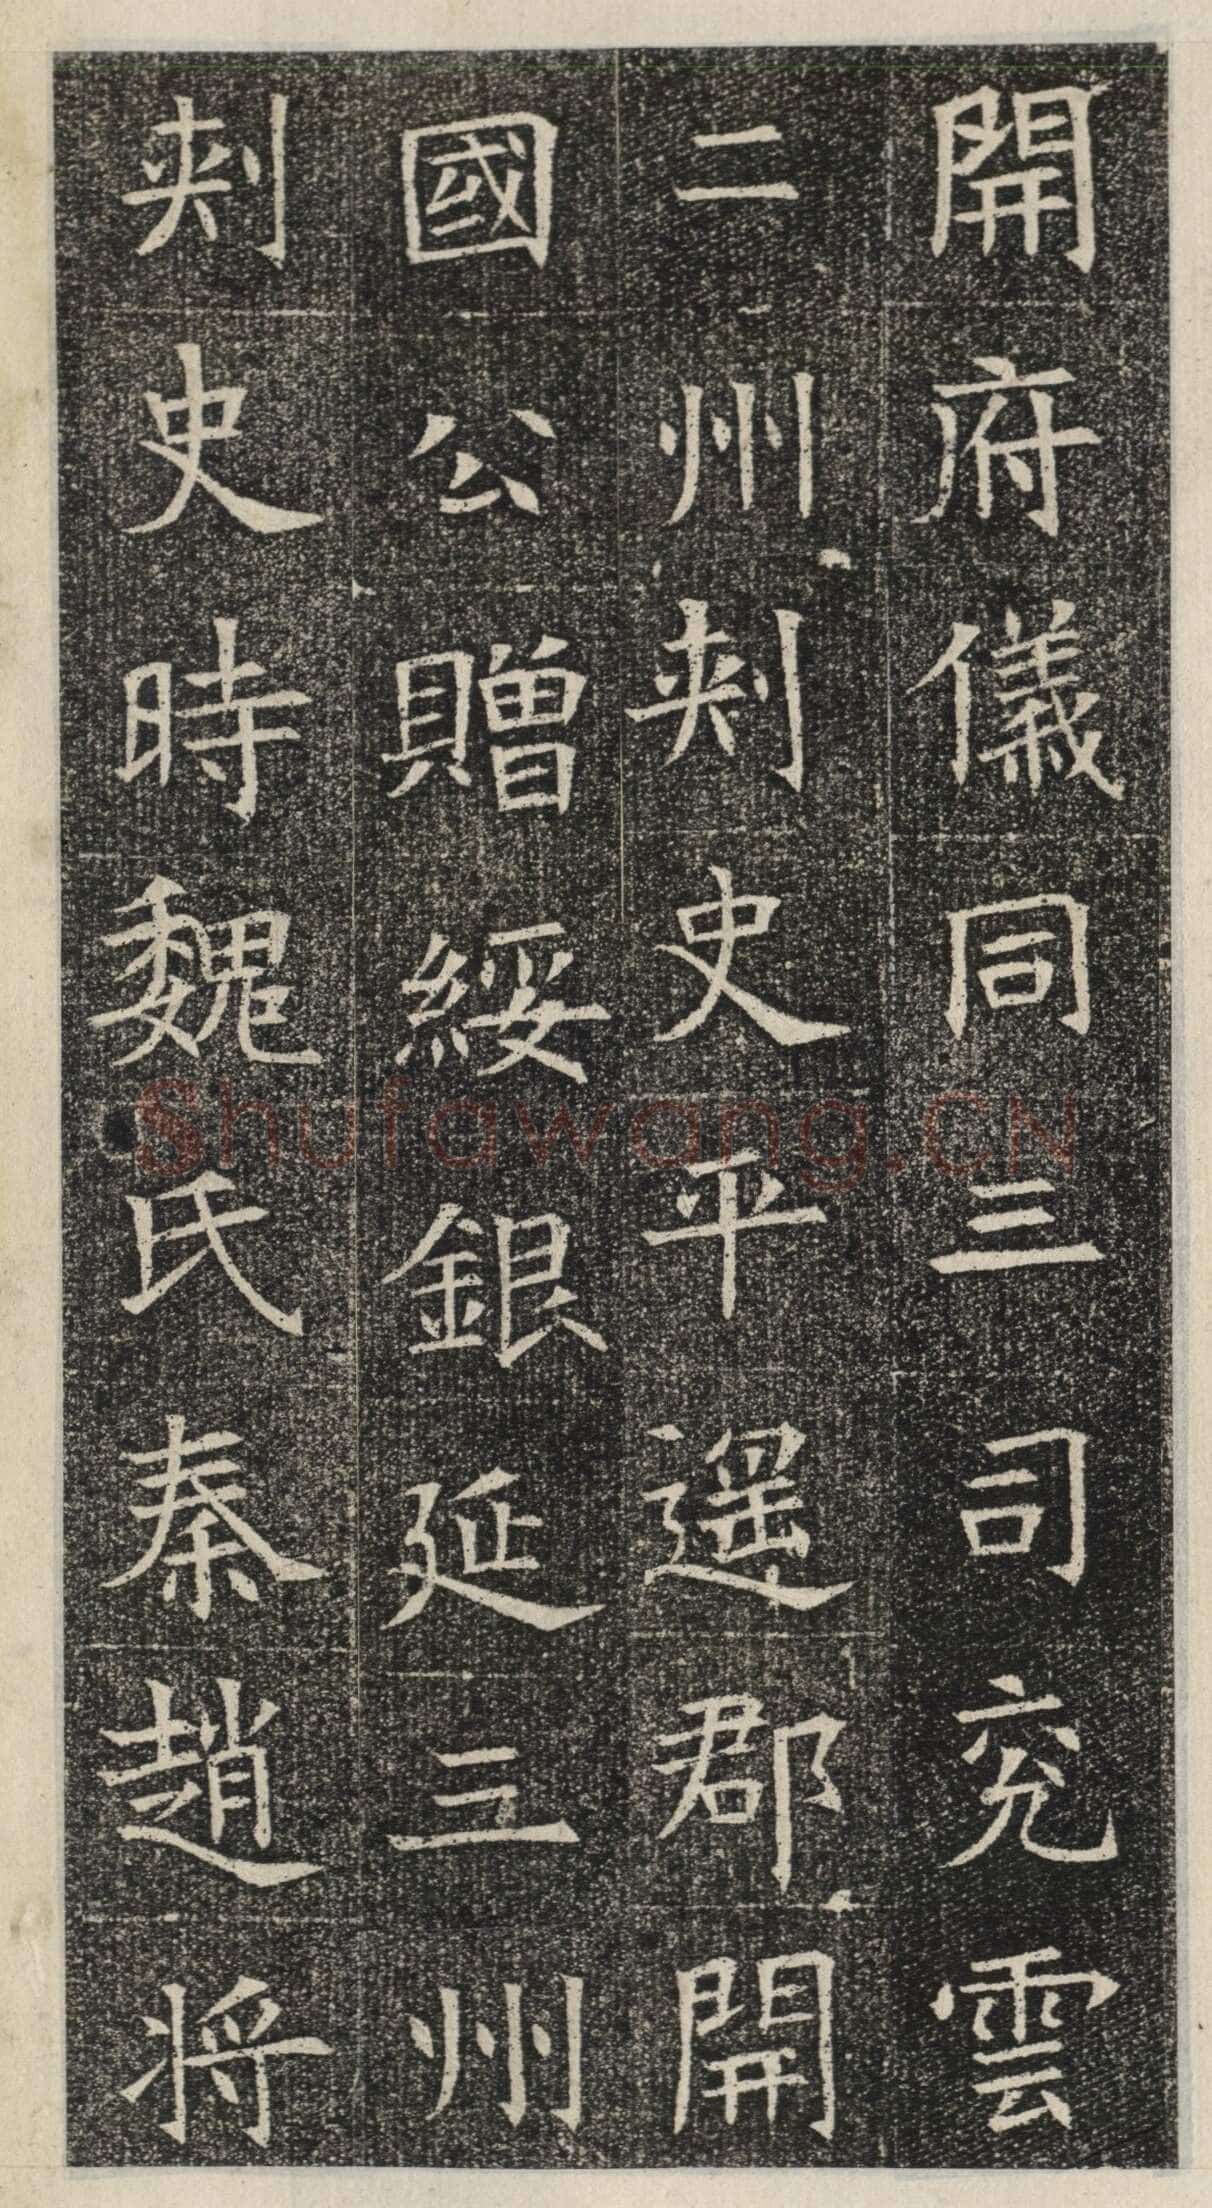 開府儀同三司兖雲
二州刾史平遥郡開
國公贈綏銀延三州
刾史時魏氏秦趙将
Shufawang.CN